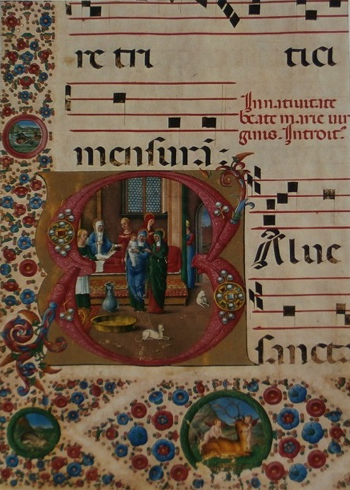 re tri tici
In natiuitate
beate marie uir
ginis. Introit.
mensurā:
SAlue
sancta